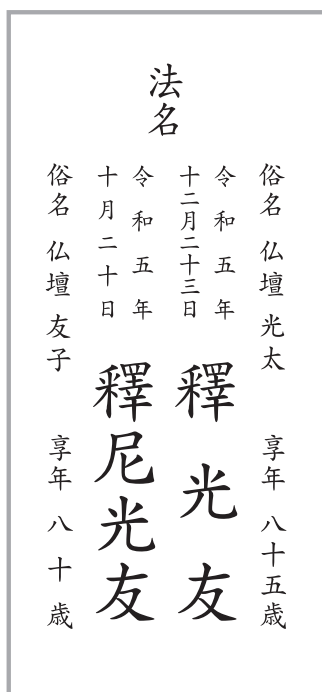 法名
俗名 仏壇 光太 享年 八十五歳
令和五年
十二月二十三日
釋 光 友
令和五年
十月二十日
釋尼光友
俗名 仏壇 友子 享年 八十歳